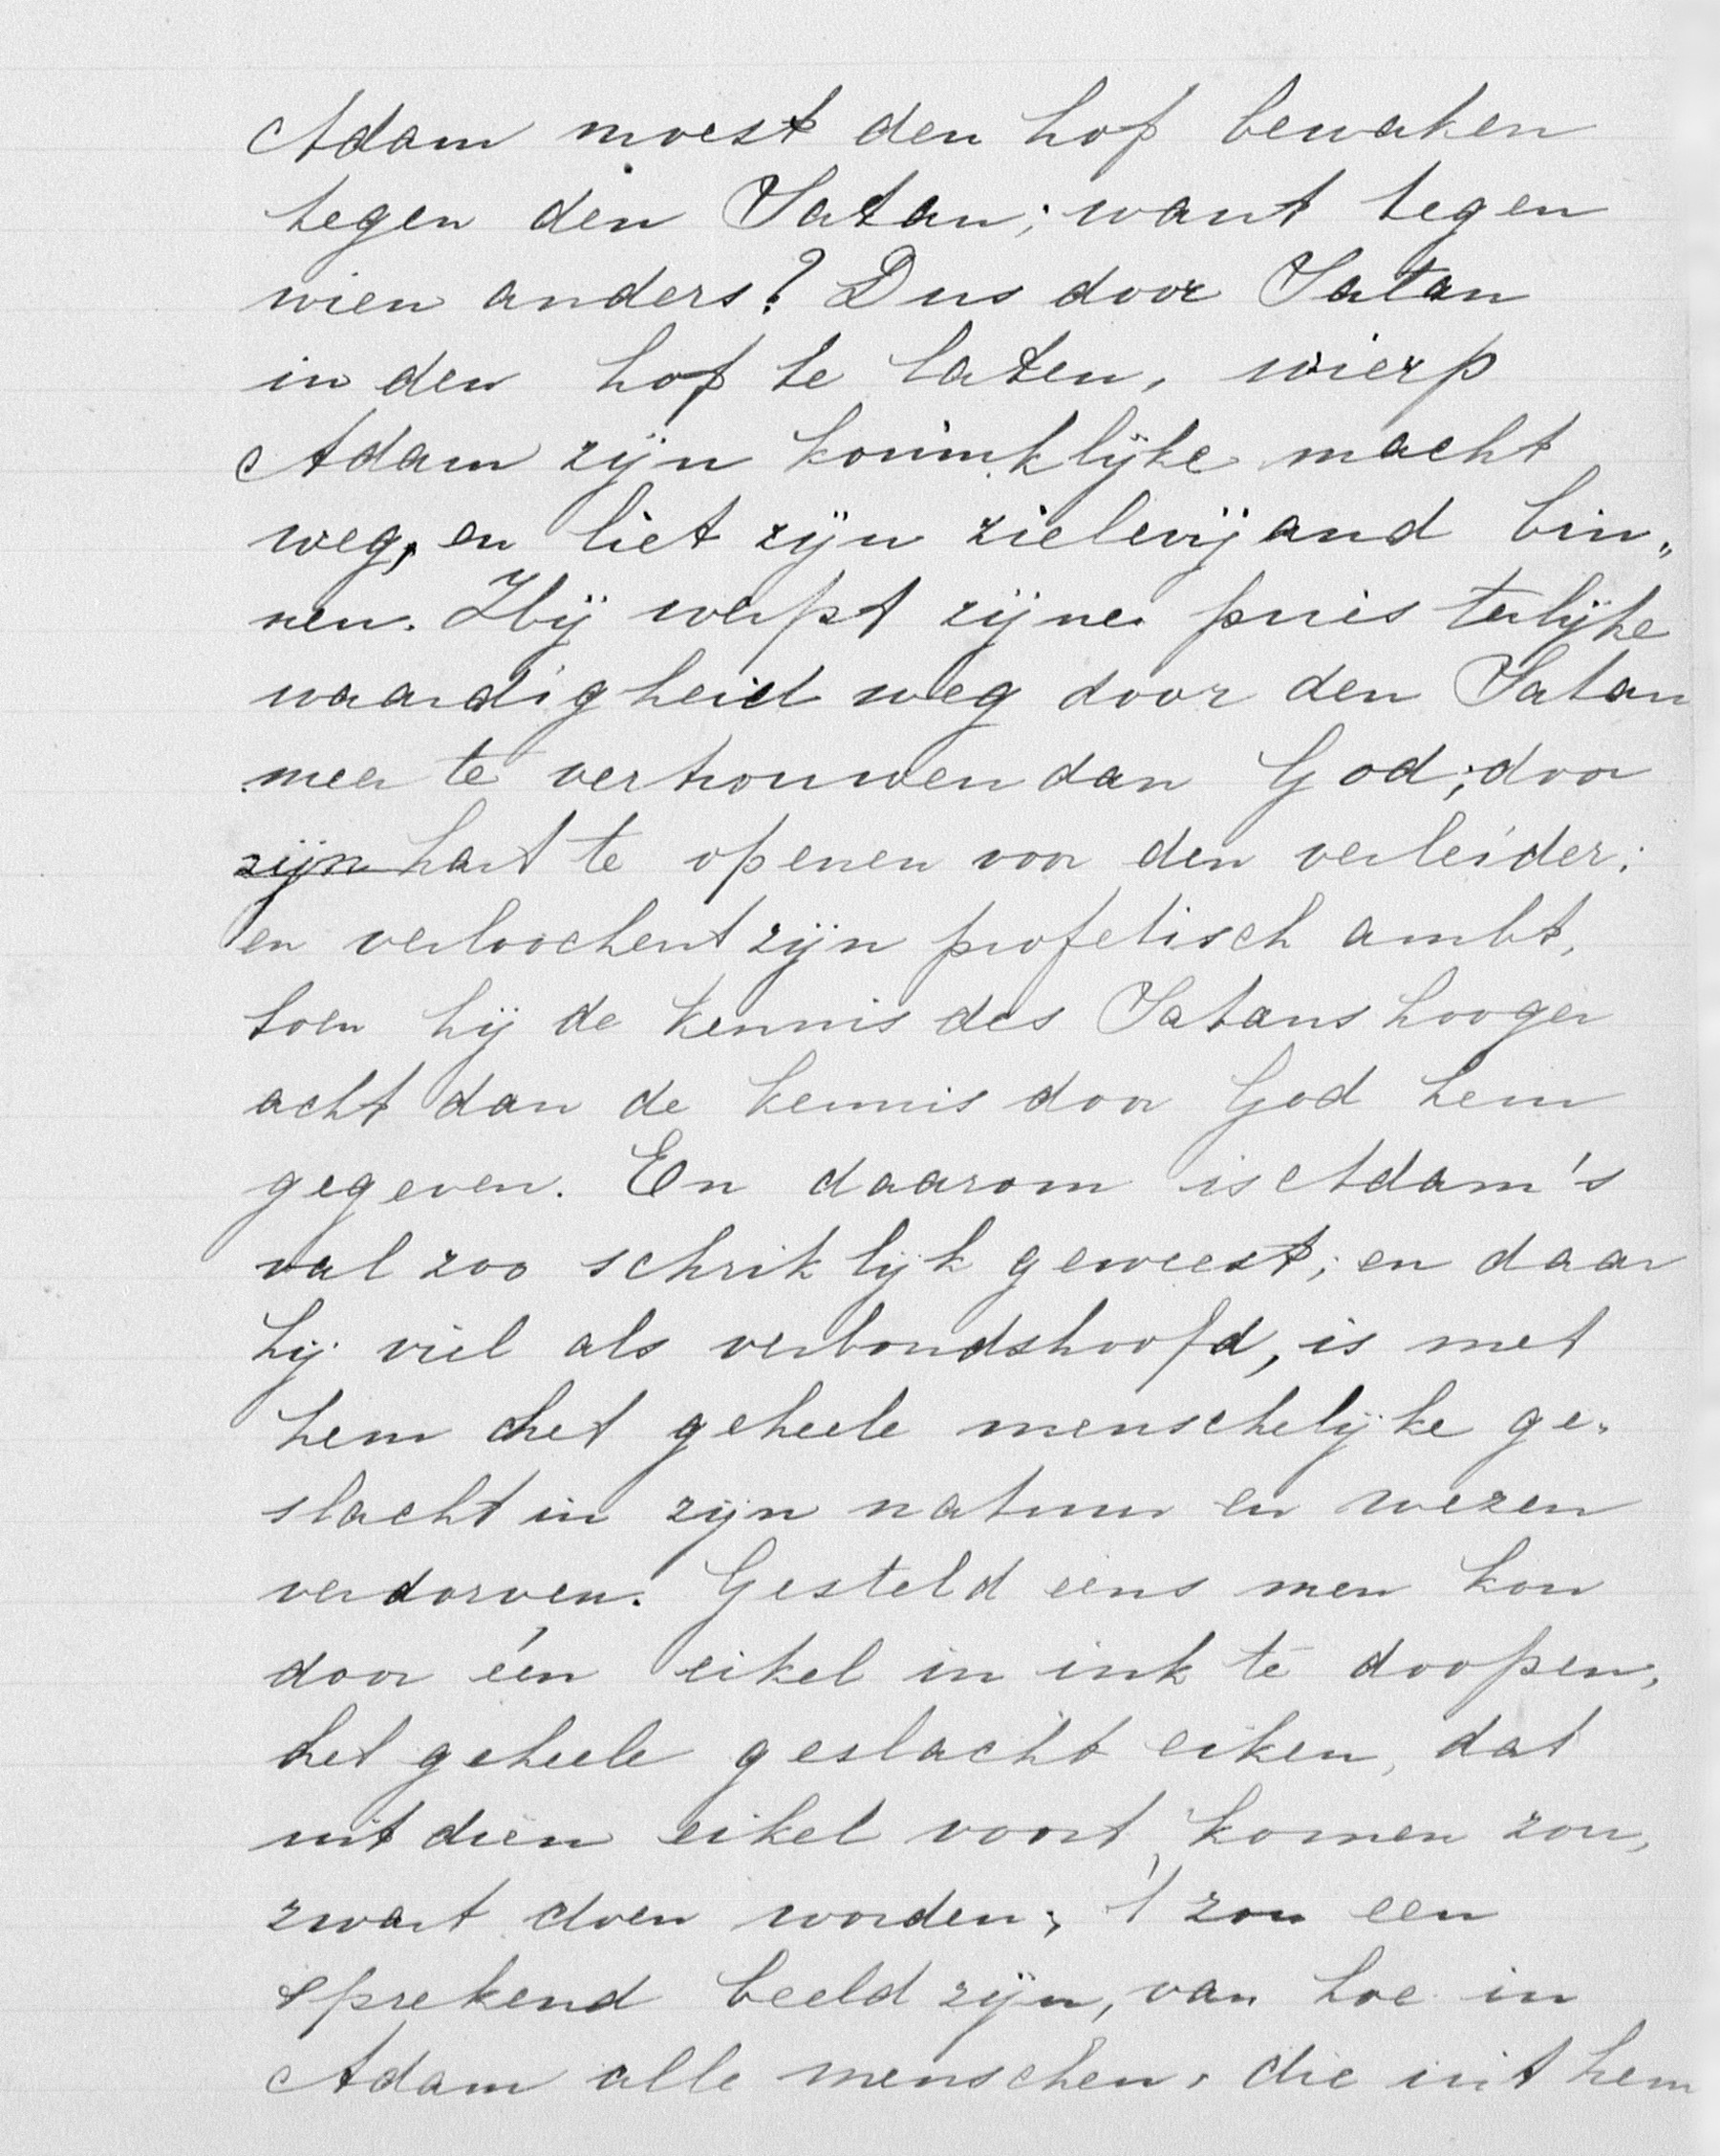 Adam moest den hof bewaken
tegen den Satan; want tegen
wien anders? Dus door Satan
in den hof te laten, wierp
Adam zijn koninklijke macht
weg, en liet zijn zielevijand bin„
nen. Hij werpt zijne priesterlijke
waardigheid weg door den Satan
meer te vertrouwen dan God; door
zijn hart te openen voor den verleider;
en verloochent zijn profetisch ambt,
toen hij de kennis des Satans hooger
acht dan de kennis door God hem
gegeven. En daarom is Adam's
val zoo schriklijk geweest; en daar
hij viel als verbondshoofd, is met
hem het geheele menschelijke ge-
slacht in zijn natuur en wezen
verdorven. Gesteld eens men kon
door één eikel in ink te doopen,
het geheele geslacht eiken, dat
uit dien eikel voort komen zou,
zwart doen worden; 't zou een
sprekend beeld zijn, van hoe in
Adam alle menschen, die uit hem